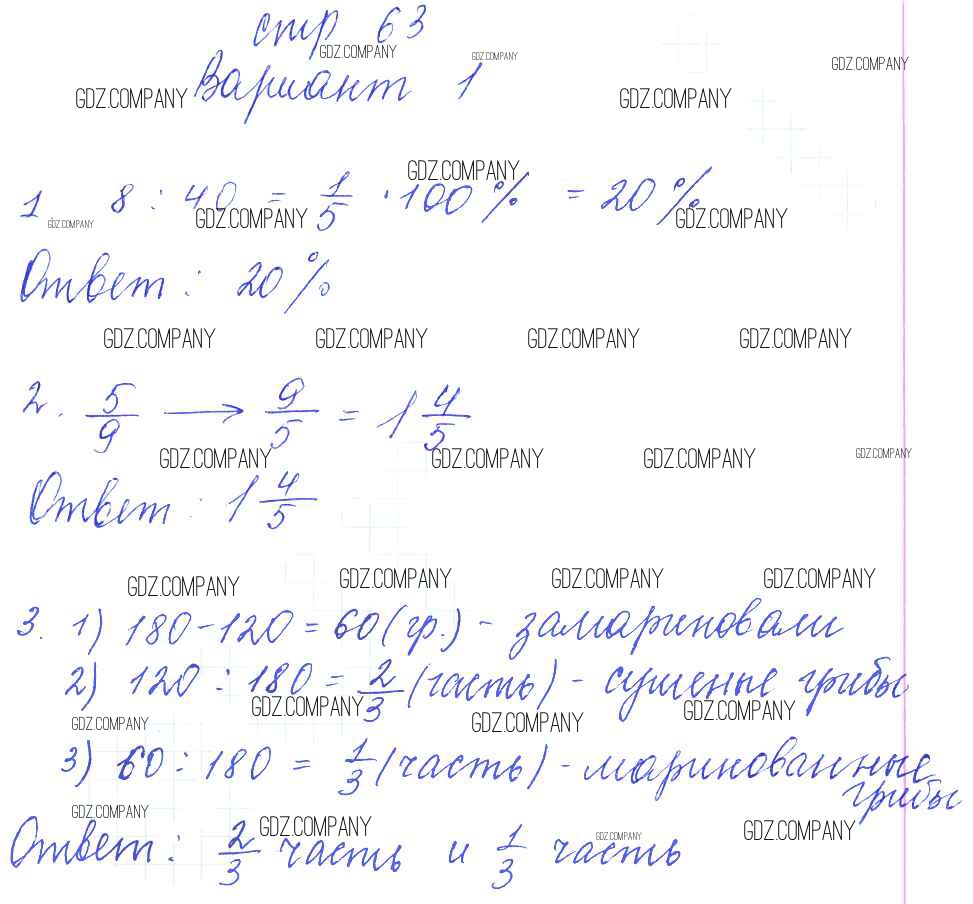 стр 63
GDZ.COMPANY GDZ.COMPANY GDZ.COMPANY
Вариант 1
GDZ.COMPANY GDZ.COMPANY
GDZ.COMPANY
1 8 : 40 = 1/5 · 100 % = 20 %
GDZ.COMPANY GDZ.COMPANY GDZ.COMPANY
Ответ : 20 %
GDZ.COMPANY GDZ.COMPANY GDZ.COMPANY GDZ.COMPANY
2. 5/9 → 9/5 = 1 4/5
GDZ.COMPANY GDZ.COMPANY GDZ.COMPANY GDZ.COMPANY
Ответ : 1 4/5
GDZ.COMPANY GDZ.COMPANY GDZ.COMPANY GDZ.COMPANY
3. 1) 180 - 120 = 60 (гр.) - замариновали
2) 120 : 180 = 2/3 (часть) - сушеные грибы
GDZ.COMPANY GDZ.COMPANY GDZ.COMPANY GDZ.COMPANY
3) 60 : 180 = 1/3 (часть) - маринованные
грибы
GDZ.COMPANY GDZ.COMPANY GDZ.COMPANY GDZ.COMPANY
Ответ : 2/3 часть и 1/3 часть